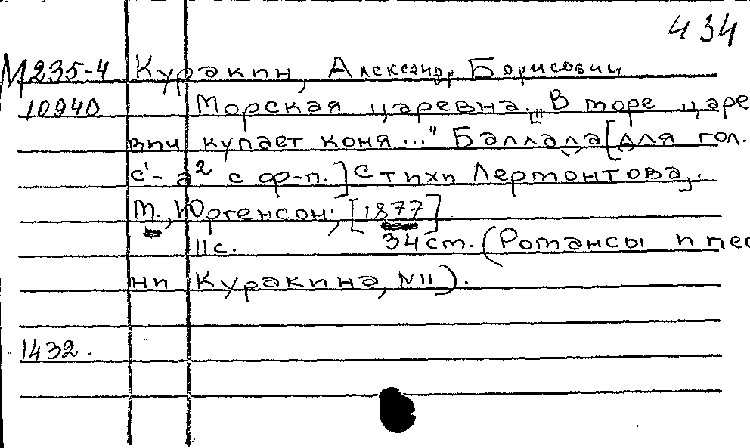 434
М235-4 Куракин, Александр Борисович
10940 Морская царевна. „В море царе
вич купает коня..." Баллада [для гол.
c¹- a² с ф-п.] Стихи Лермонтова,.
М., Юргенсон, [1877]
11с. 34 ст. (Романсы и пес
ни Куракина, №11).
1432.